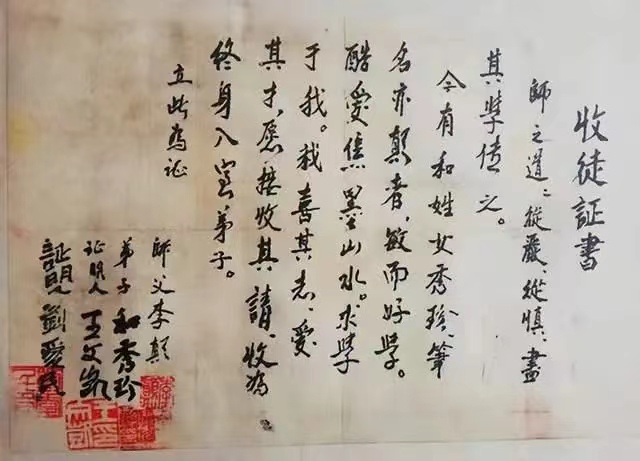 收徒証書
師之道:從嚴、從慎、盡
其學傳之。
今有和姓女秀珍、筆
名亦顛者,敏而好學。
酷愛焦墨山水。求學
于我。我喜其志、愛
其才,愿接收其請、收為
終身入室弟子。
立此為证
師父李顛
弟子和秀珍
证明人王文凱
証明人劉愛民